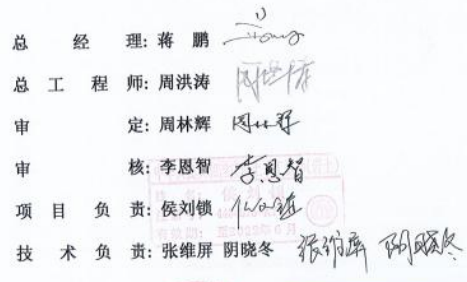 总经理: 蒋鹏
总工程师: 周洪涛
审定: 周林辉 周林辉
审核: 李恩智 李恩智
项目负责: 侯刘锁
技术负责: 张维屏 阴晓冬 张维屏 阴晓冬